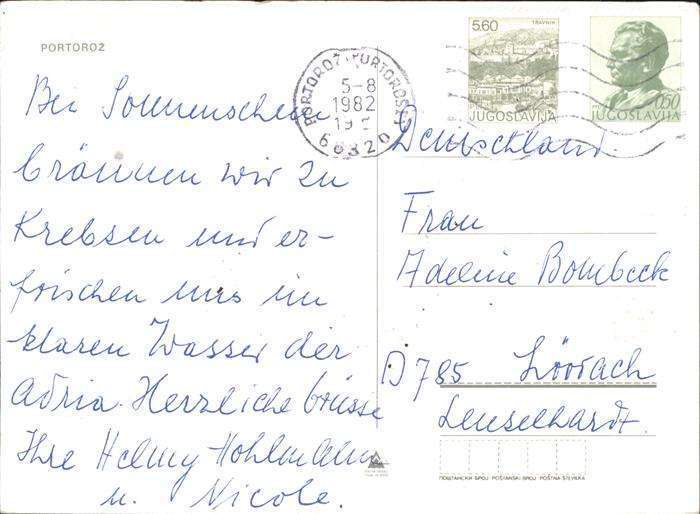 PORTOROŽ
Bei Sonnenschein
bräunen wir zu
Krebsen und er-
frischen uns im
klaren Wasser der
Adria. Herzliche Grüsse
Ihre Helmy Hohlmann
u. Nicole.
PORTOROŽ-PORTOROSE
5-8
1982
19
66320
5.60
TRAVNIK
JUGOSLAVIJA
0,50
JUGOSLAVIJA
Deutschland.
Frau
Adeline Bombeck
D 785 Lörrach
Leuselhardt.
ПОШТАНСКИ БРОЈ POŠTANSKI BROJ POŠTNA ŠTEVILKA